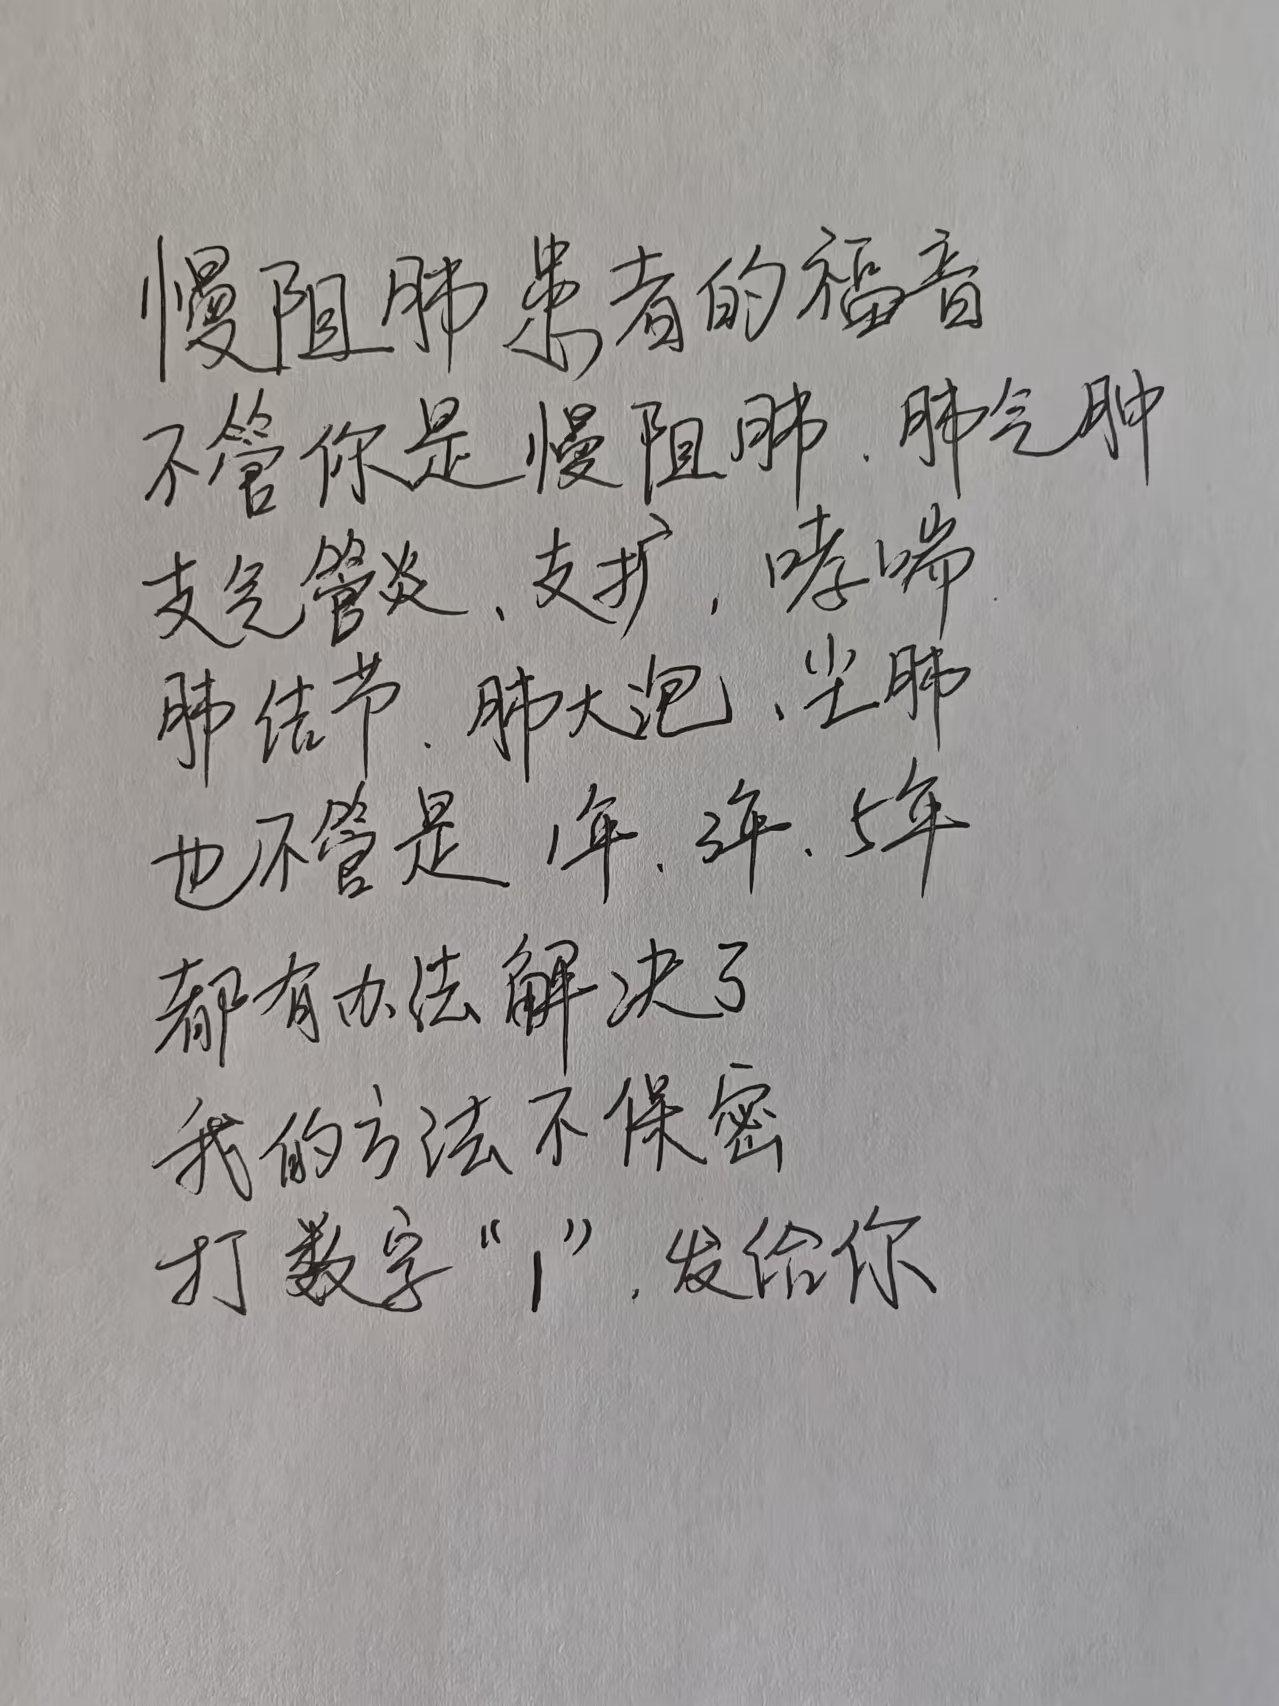 慢阻肺患者的福音
不管你是慢阻肺、肺气肿
支气管炎、支扩、哮喘
肺结节、肺大泡、尘肺
也不管是 1年、3年、5年
都有办法解决了
我的方法不保密
打数字“1”、发给你